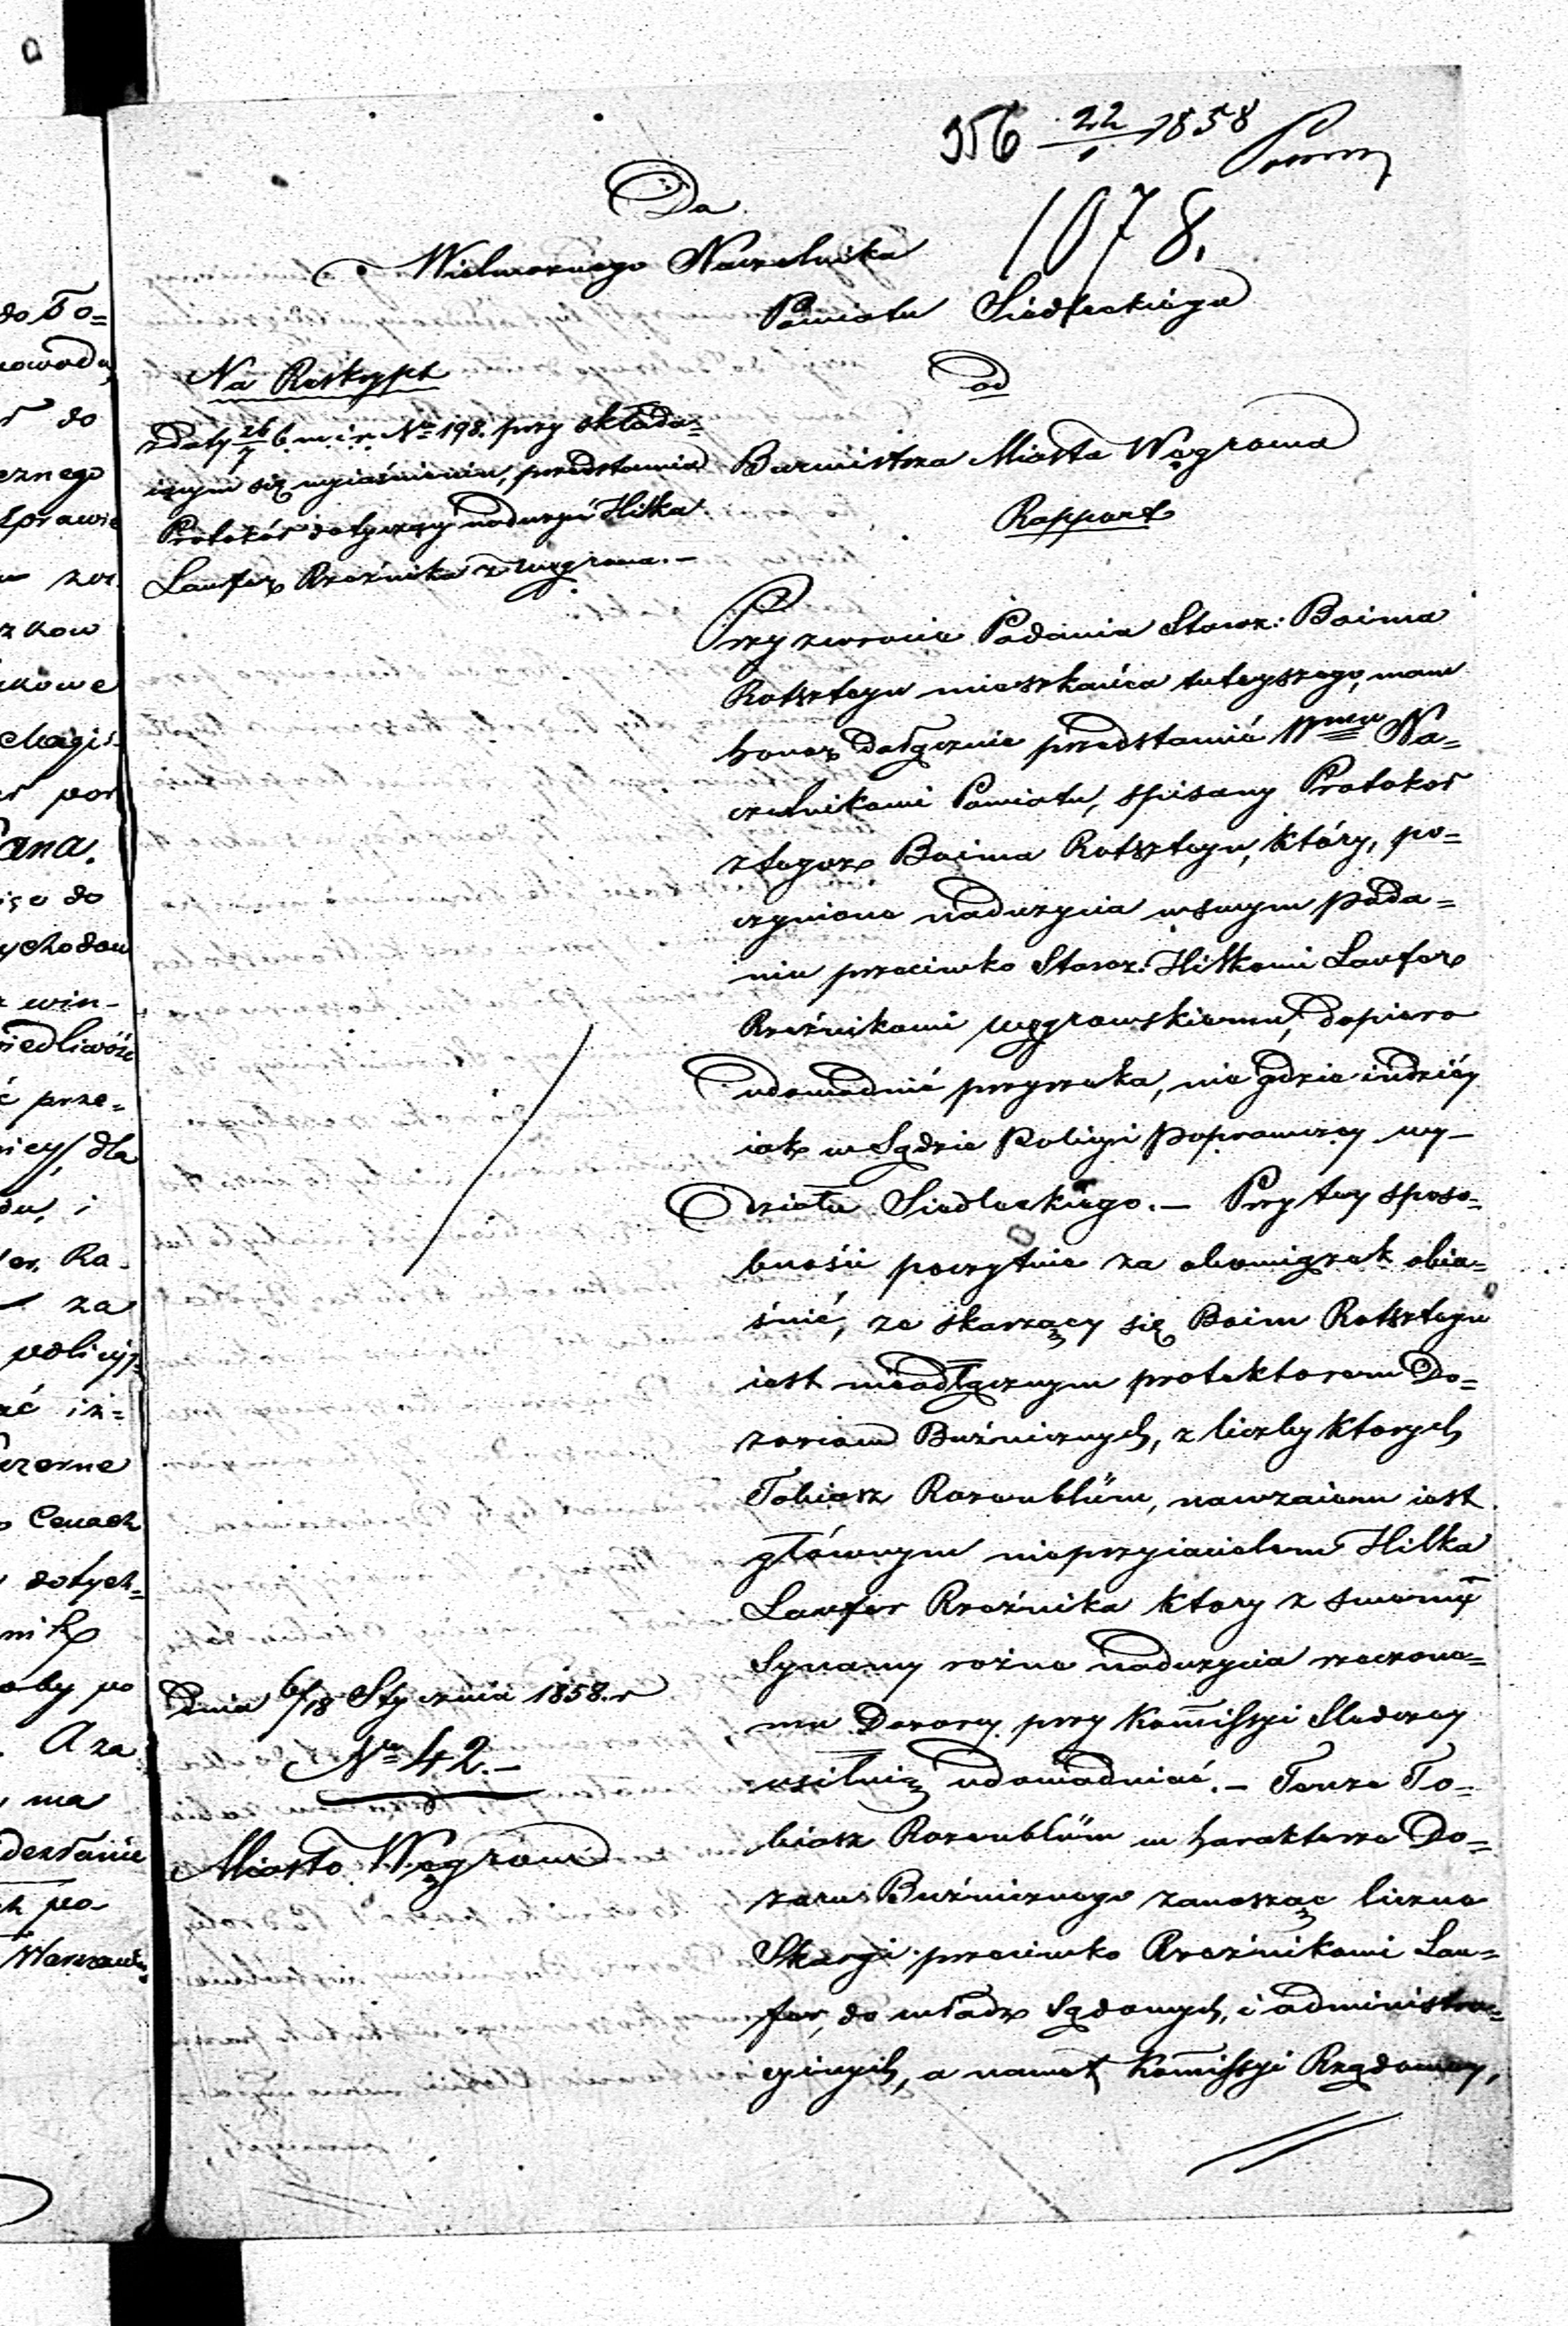 956 22/1 1858
1078.
Do
Wielmożnego Naczelnika
Powiatu Siedleckiego
od
Burmistrza Miasta Węgrowa
Rapport
Na Reskrypt
z daty b. m. i r. No 198. przy składa=
iącym się wyiaśnieniu, przedstawia
Protokół dotyczący nadużyć Hilka
Laufer Rzeźnika z Węgrowa. –
Przy zwrocie Podania Starz: Boima
Rotszteyn mieszkańca tuteyszego, mam
honor dołącznie przedstawić Wmu Na=
czelnikowi Powiatu, spisany Protokół
z tegoż Boima Rotszteyn, który, po=
czynione nadużycia w swym poda=
niu przeciwko Starz: Hilkowi Laufer
Rzeźnikowi węgrowskiemu, dopiero
udowodnić przyrzeka, nie gdzie indziéy
iak w Sądzie Policyi Poprawczey wy–
działu Siedleckiego. – Przy tey sposo=
bności poczytuie za obowiązek obia=
śnić, że skarżący się Boim Rotszteyn
iest nieodłącznym protektorem Do=
zorców Bużnicznych, z liczby ktorych
Tobiasz Rozenblüm, nawzaiem iest
głównym nieprzyiacielem Hilka
Laufer Rzeźnika ktory z swemi
Synamy rożne nadużycia rzeczone=
mu Dozorcy przy Kommissyi Sledczey
usiłuie udowadniać. – Tenże To=
biasz Rozenblüm w harakterze Do=
zorcy Bużnicznego zanosząc liczne
Skargi przeciwko Rzeźnikowi Lau=
fer, do władz Sądowych, i administra=
cyinych, a nawet Kommissyi Rządowey,
Dnia 6/18 Stycznia 1858. r
No 42. –
Miasto Węgrow
do To=
do
cznego
sprawie
ikowe
Magis=
Pana.
do
win–
prze=
dla
i
Ra=
za
czerne
Cenach
dotych=
po
Aza
ma
po–